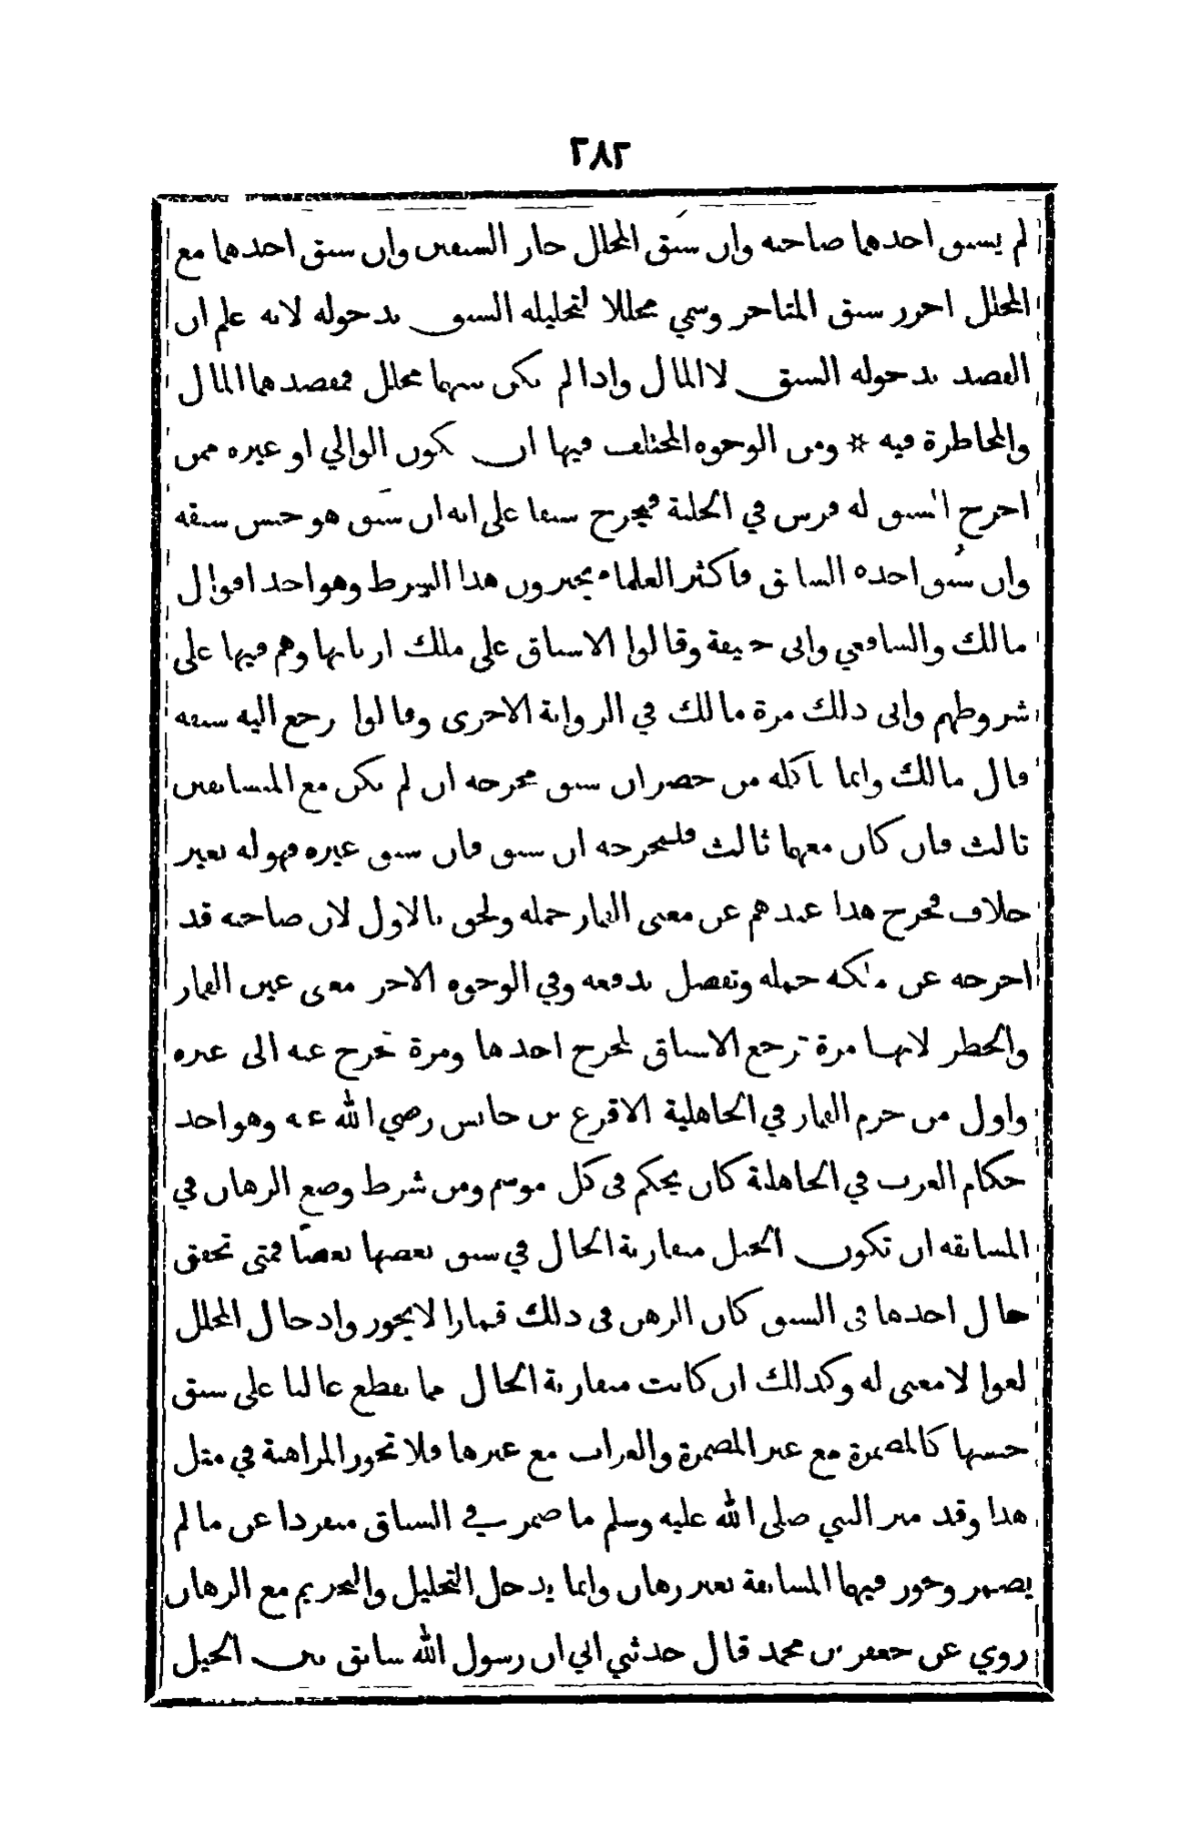 ٢٨٢
لم يسبق احدهما صاحبه وان سبَق المحلل حاز السبقين وان سبق احدهما مع
المحلل احرز سبق المتاخر وسمي محللا لتحليله السبق بدخوله لانه علم ان
القصد بدخوله السبق لا المال واذا لم يكن بينهما محلل فمقصدهما المال
والمخاطرة فيه * ومن الوجوه المختلف فيها ان يكون الوالي او غيره ممن
اخرج السبق له فرس في الحلبة فيخرج سبقا على انه ان سَبق هو حبس سبقه
وان سُبق اخذه السابق فاكثر العلماء يجيزون هذا الشرط وهو احد اقوال
مالك والشافعي وابي حنيفة وقالوا الاسباق على ملك اربابها وهم فيها على
شروطهم وابى ذلك مرة مالك في الرواية الاخرى وقالوا رجع اليه سبقه
قال مالك وانما ياكله من حضر ان سبق مخرجه ان لم يكن مع المتسابقين
ثالث فان كان معهما ثالث فلمخرجه ان سبق فان سبق غيره فهو له بغير
خلاف فخرج هذا عندهم عن معنى القمار جمله ولحق بالاول لان صاحبه قد
اخرجه عن ملكه جمله وتفضل بدفعه وفي الوجوه الاخر معنى عين القمار
والخطر لانها مرة ترجع الاسباق لمخرج احدها ومرة تخرج عنه الى غيره
واول من حرم القمار في الجاهلية الاقرع بن حابس رضي الله عنه وهو احد
حكام العرب في الجاهلية كان يحكم في كل موسم ومن شرط وضع الرهان في
المسابقه ان تكون الخيل متقاربة الحال في سبق بعضها بعضًا فمتى تحقق
حال احدها في السبق كان الرهن في ذلك قمارا لا يجوز وادخال المحلل
لغوا لا معنى له وكذلك ان كانت متقاربة الحال مما يقطع غالبا على سبق
جنسها كالمضمرة مع غير المضمرة والعراب مع غيرها فلا تجوز المراهنة في مثل
هذا وقد ميز النبي صلى الله عليه وسلم ما ضمر في السباق منفردا عن ما لم
يضمر وجوز فيها المسابقة بغير رهان وانما يدخل التحليل والتحريم مع الرهان
روي عن جعفر بن محمد قال حدثني ابي ان رسول الله سابق بين الخيل